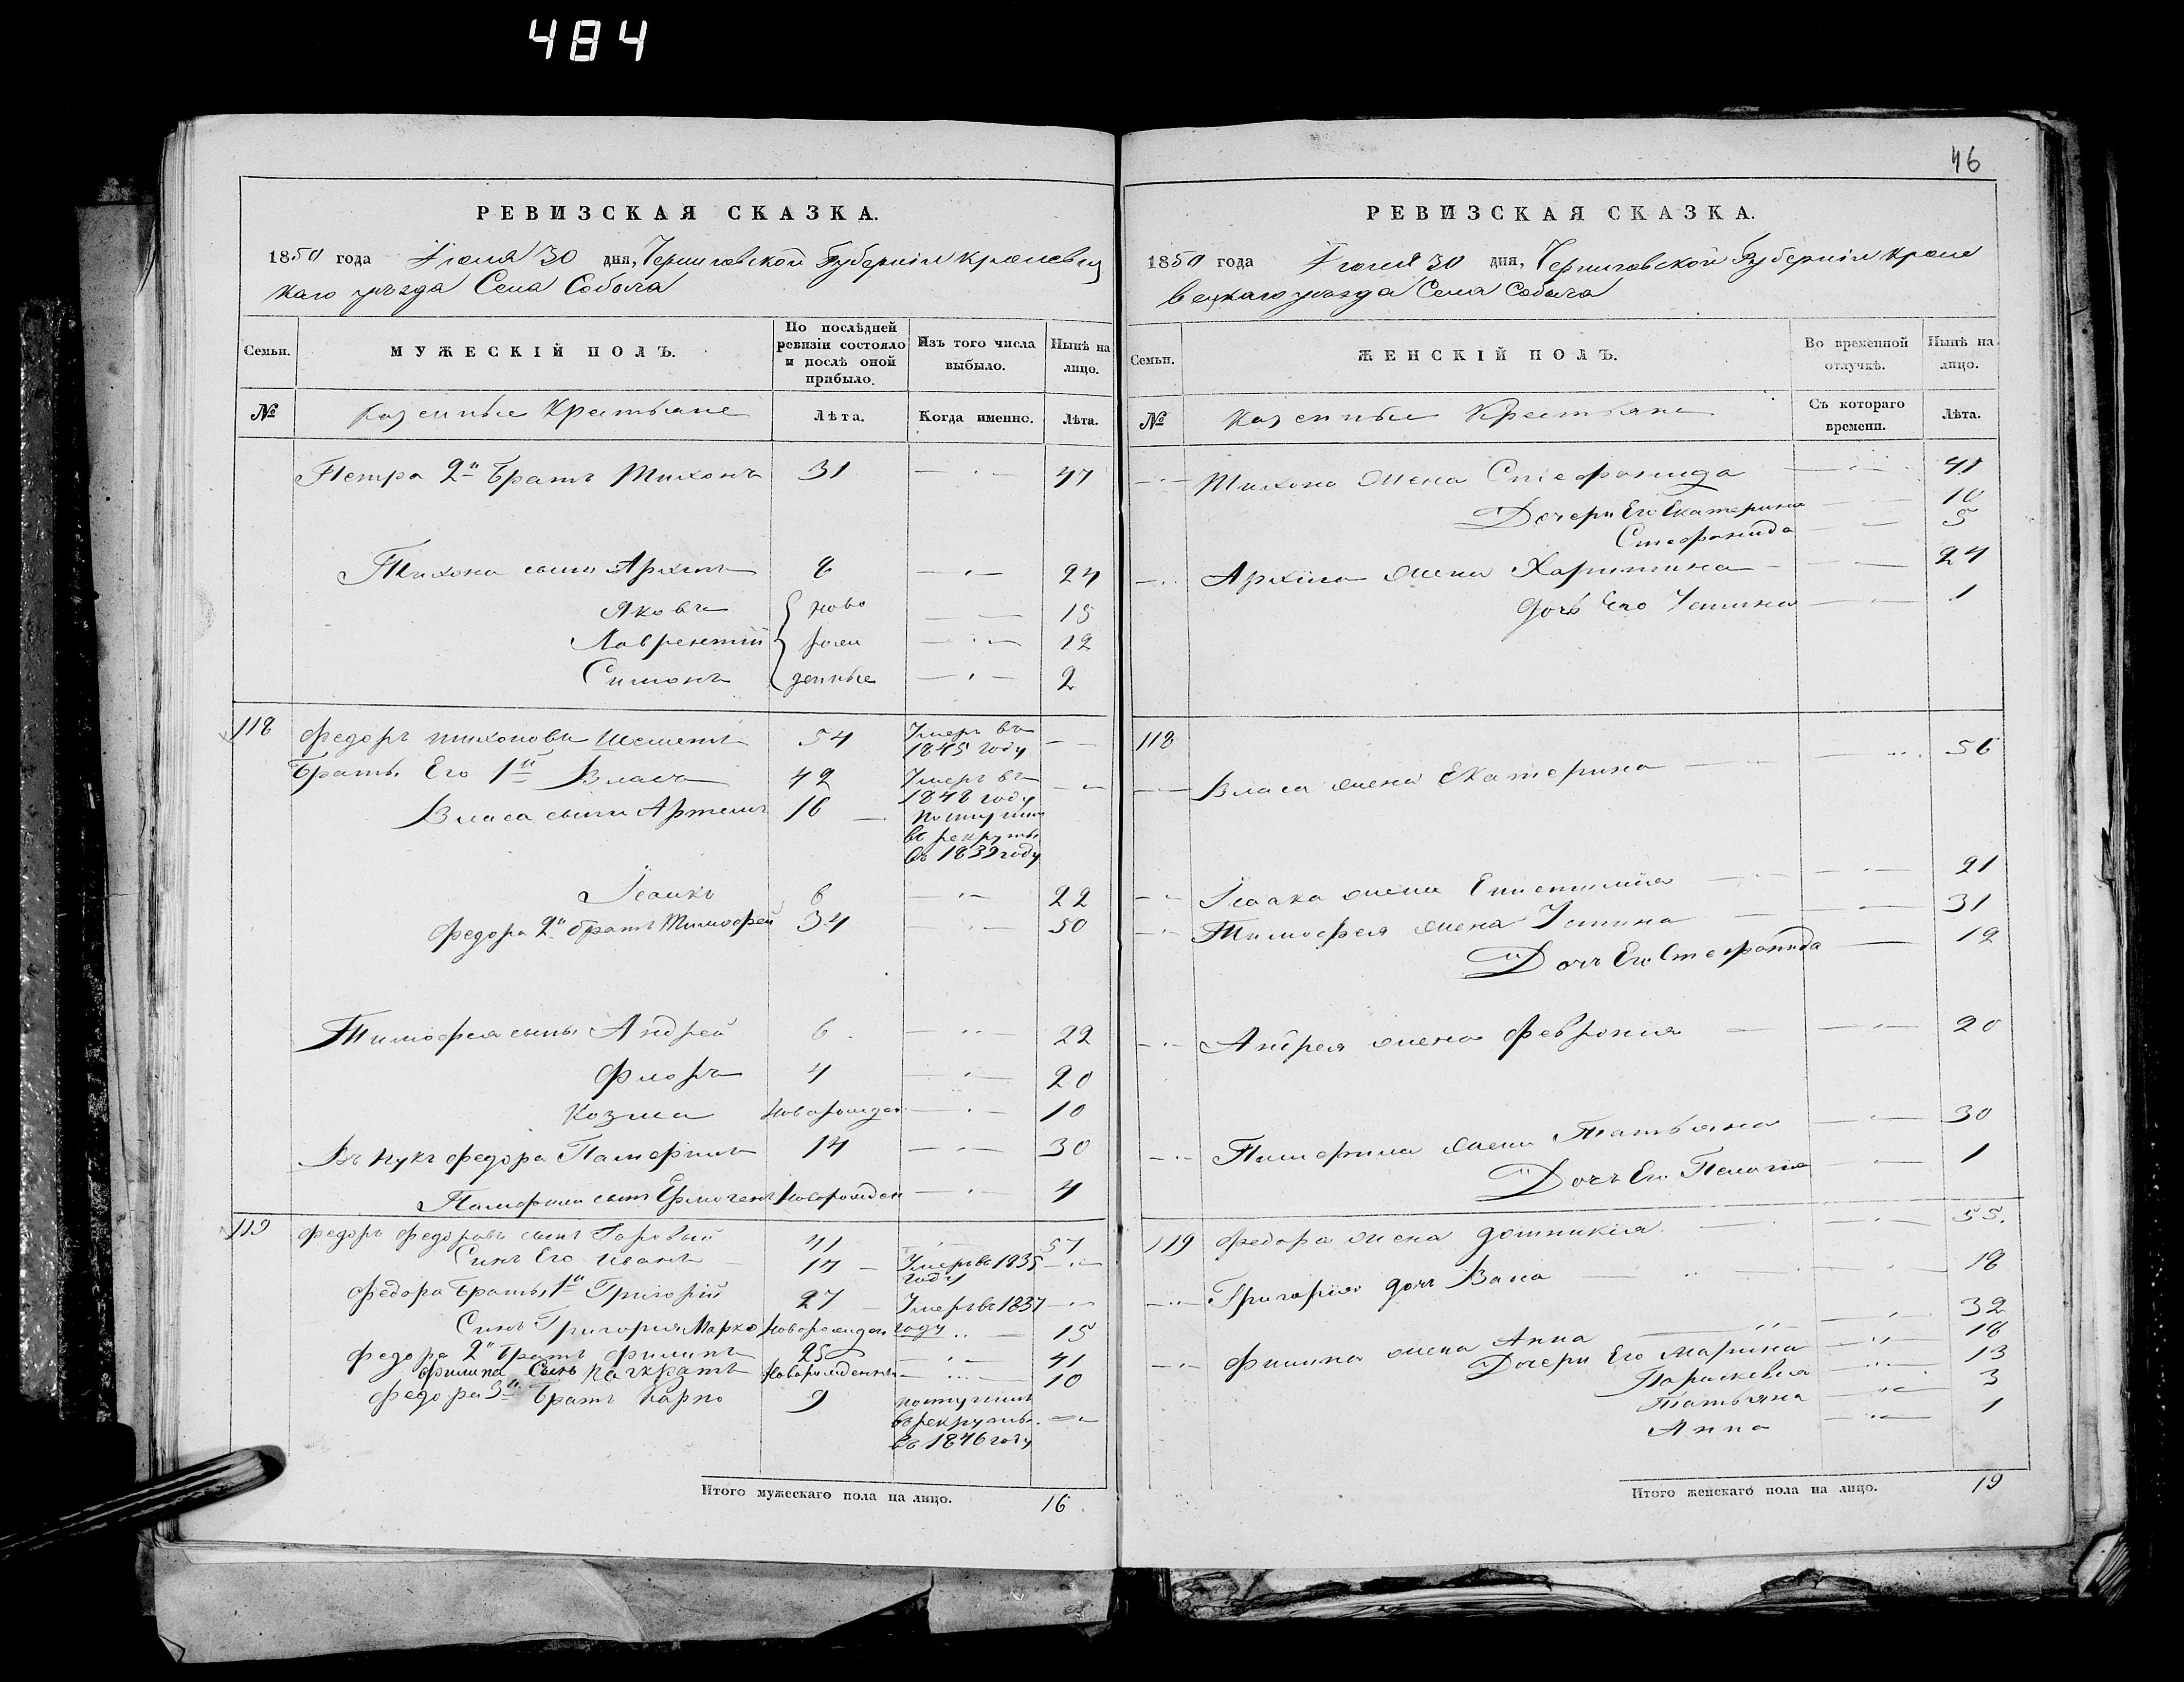 484
46
РЕВИЗСКАЯ СКАЗКА.
1850 года Іюля 30 дня, Черниговской Губерніи Кролевец
каго уѣзда Села Собыча
Семьи.
МУЖЕСКІЙ ПОЛЪ.
По послѣдней ревизіи состояло и послѣ оной прибыло.
Изъ того числа выбыло.
Нынѣ на лицо.
№
Казенные Крестьяне
Лѣта.
Когда именно.
Лѣта.
Петра 2й братъ Тихонъ 31 47
Тихона сыны Архипъ 8 24
Яковъ ново 15
Лаврентій рож 12
Симонъ денные 2
118 Федоръ Тихоновъ Шеметъ 54 Умеръ въ 1845 году
Братъ Его 1й Власъ 42 Умеръ въ 1848 году
Власа сыны Артемъ 16 поступилъ въ рекруты въ 1839 году
Ісаакъ 6 22
Федора 2й братъ Тимофей 34 50
Тимофея сыны Андрей 6 22
Флоръ 4 20
Козма Новорожден 10
Внукъ Федора Памфилъ 14 30
Памфила сынъ Ермогенъ Новорожден 4
119 Федоръ Федоровъ сынъ Горовый 41 57
Сынъ Его Иванъ 17 Умеръ въ 1835 году
Федора братья 1й Григорій 27 Умеръ въ 1837 году
Сынъ Григорія Марко Новорожден 15
Федора 2й братъ Филипъ 25 41
Филипа Сынъ Панкратъ Новорожденнъ 10
Федора 3й Братъ Карпо 9 поступилъ въ рекруты въ 1846 году
Итого мужескаго пола на лицо. 16
РЕВИЗСКАЯ СКАЗКА.
1850 года Іюля 30 дня, Черниговской Губерніи Кроле
вецкаго уѣзда Села Собыча
Семьи.
ЖЕНСКІЙ ПОЛЪ.
Во временной отлучкѣ.
Нынѣ на лицо.
№
Казенные Крестьяне
Съ котораго времени.
Лѣта.
Тихона жена Стефанида 41
Дочери Его Екатерина 10
Стефанида 5
Архипа жена Харитина 24
дочь Его Устина 1
118
Власа жена Екатерина 56
Ісаака жена Епистимія 21
Тимофея жена Устина 31
Дочь Его Стефанида 12
Андрея жена Феврония 20
Памфила жена Татьяна 30
Дочь Его Пелагия 1
119 Федора жена Домникія 55.
Григорія дочь Васа 18
Филипа жена Анна 32
Дочери Его Марина 18
Параскевия 13
Татьяна 3
Анна 1
Итого женскаго пола на лицо. 19